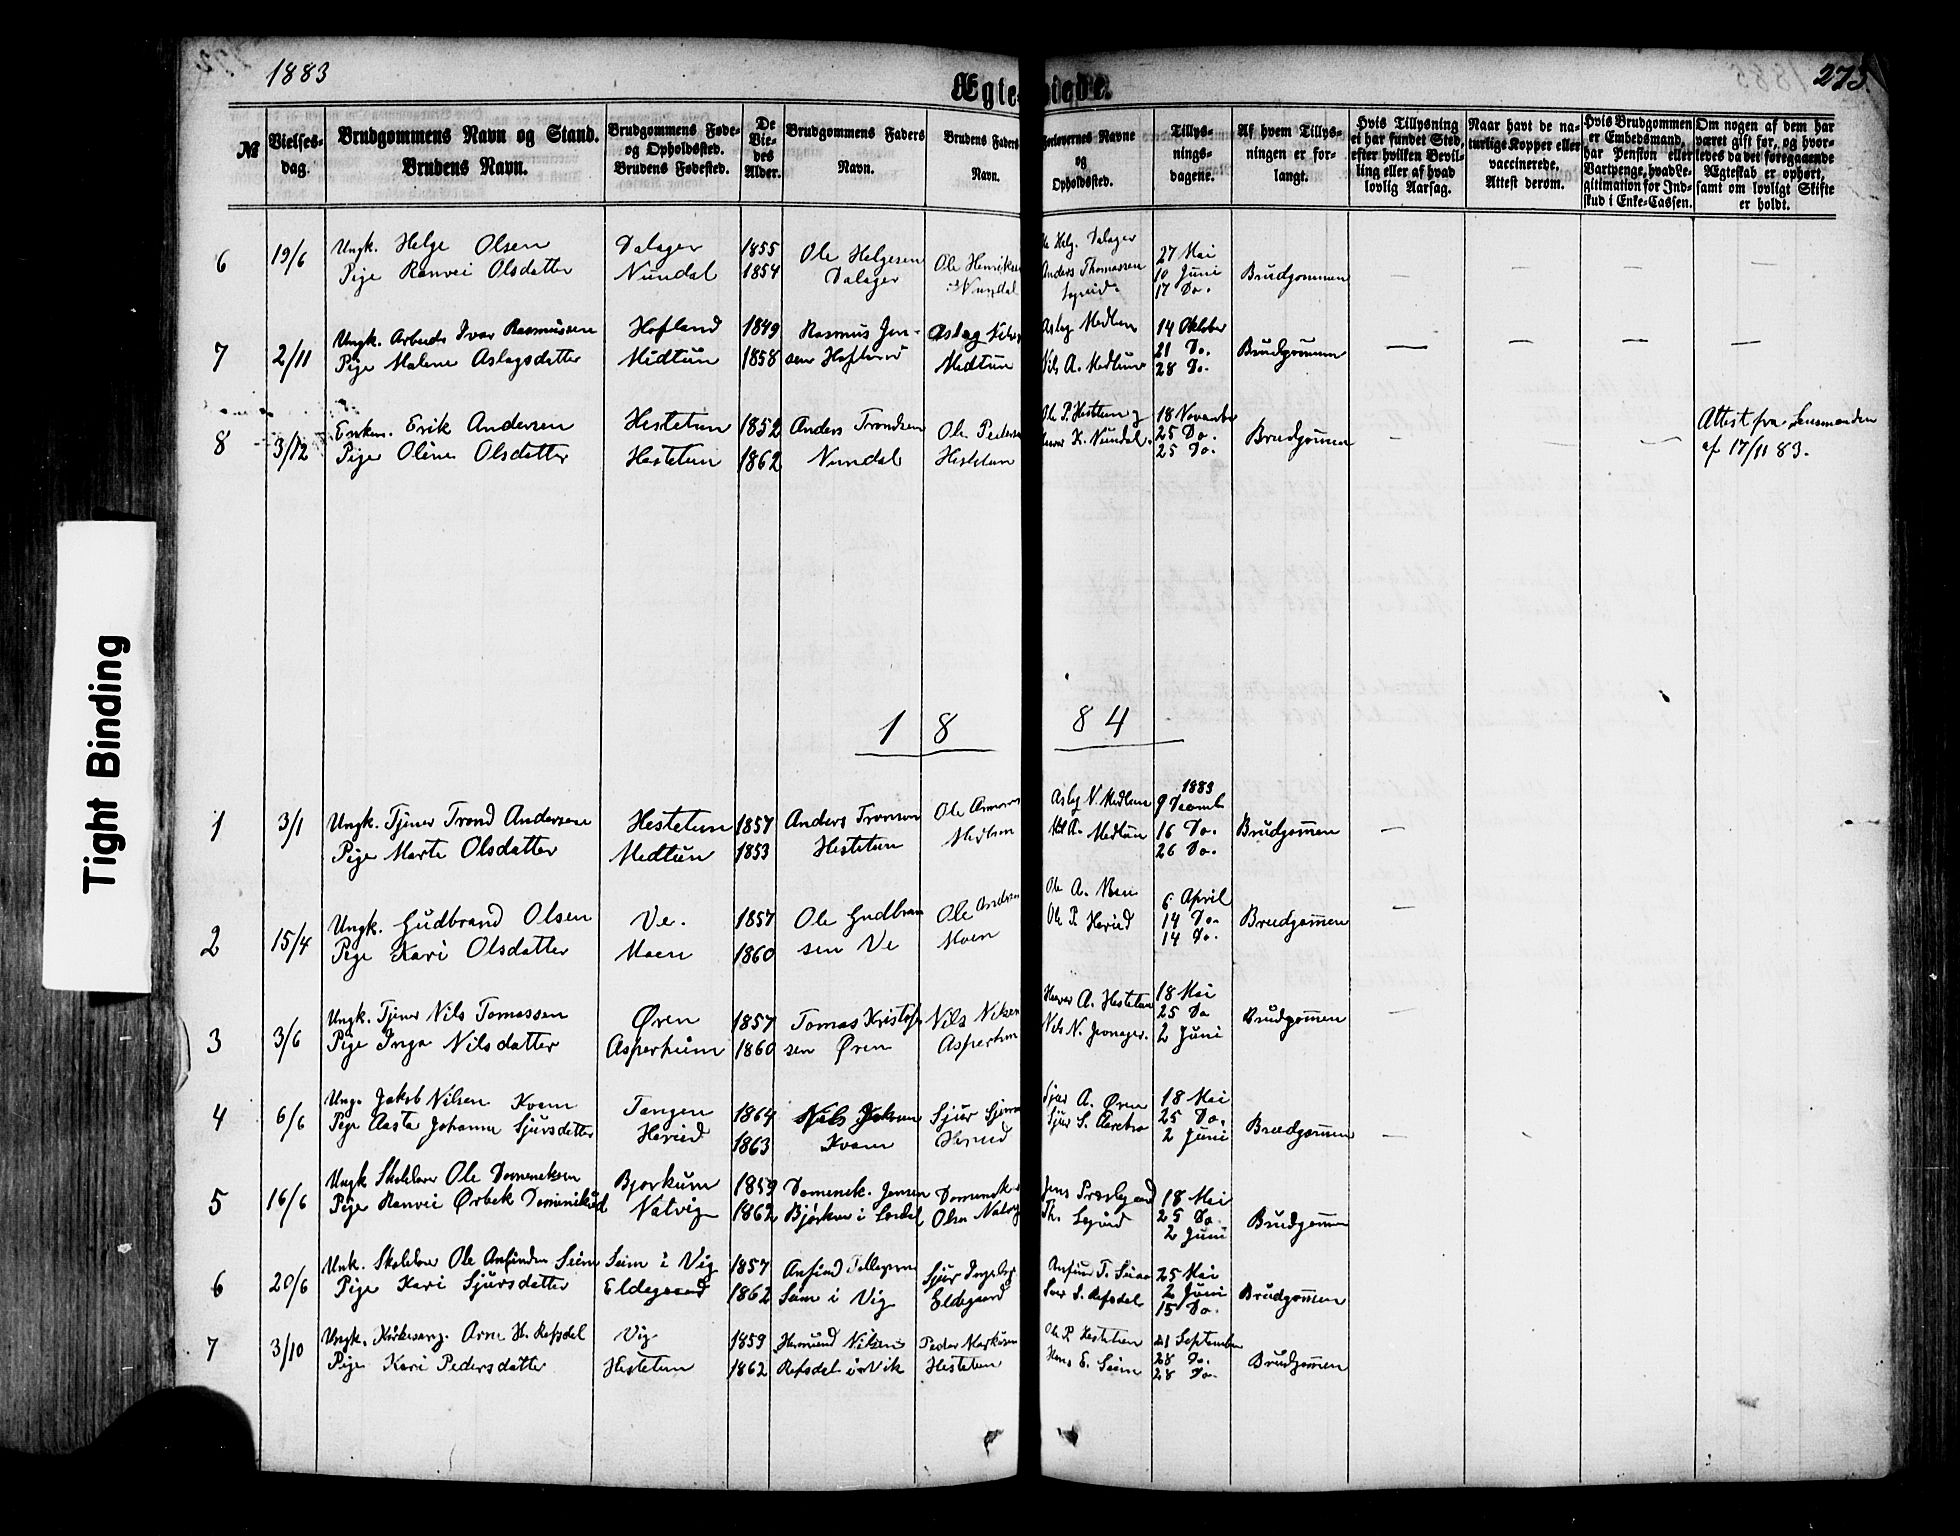 1883
Ægteviede.
273.
№
Vielses-
dag.
Brudgommens Navn og Stand.
Brudens Navn.
Brudgommens Føde-
og Opholdssted.
Brudens Fødested.
De
Vie-
des
Alder.
Brudgommens Faders
Navn.
Brudens Faders
Navn.
Forlovernes Navne
og
Opholdssted.
Tillys-
nings-
dagene.
Af hvem Tillys-
ningen er for-
langt.
Hvis Tillysning
ei har fundet Sted,
efter hvilken Bevil-
ling eller af hvad
lovlig Aarsag.
Naar havt de na-
turlige Kopper eller
vaccinerede.
Attest derom.
Hvis Brudgommen
er Embedsmand,
har Pension eller
Vartpenge, hvad Le-
gitimation for Ind-
skud i Enke-Cassen.
Om nogen af dem har
været gift før, og hvor-
ledes da det foregaaende
Ægteskab er ophørt,
samt om lovligt Skifte
er holdt.
6 19/6 Ungk. Helge Olsen Dalager 1855 Ole Helgesen Ole Henriksen Helg. Dalager 27 Mai
Pige Ranvei Olsdatter Nundal 1854 Dalager Nundal Anders Thomassen 10 Juni Brudgommen
17 Do.
7 2/11 Ungk. Arbeids Ivar Rasmussen Hofland 1849 Rasmus Jen- Aslag Nils Aslag Medtun 14 Oktober
Pige Malene Aslagsdatter Midtun 1858 sen Hofland Medtun Nils A. Medtun 21 Do. Brudgommen
28 Do.
8 3/12 Enkem. Erik Andersen Hestetun 1852 Anders Trondsen Ole Pedersen Ole P. Hestetun 18 November Attest fra Lensmanden
Pige Oline Olsdatter Hestetun 1862 Nundal Hestetun K. Nundal. 25 Do. Brudgommen af 17/11 83.
25 Do.
1884
1 3/1 Ungk. Tjener Trond Andersen Hestetun 1857 Anders Tronson Ole Aslag N. Medtun 1883 9 Decemb
Pige Marte Olsdatter Medtun 1853 Hestetun Medtun A. Medtun 16 Do. Brudgommen
26 Do.
2 15/4 Ungk. Gudbrand Olsen Ve. 1857 Ole Gudbran Ole Andersen Ole A. Moen 6 April
Pige Kari Olsdatter Moen 1860 sen Ve Moen Ole P. Herud 14 Do. Brudgommen
14 Do.
3 3/6 Ungk. Tjener Nils Tomassen Øren 1857 Tomas Kristof Nils Nilsen A. Hestetun 18 Mai
Pige Inga Nilsdatter Asperhum 1860 sen Øren Nils N. 25 Do Brudgommen
2 Juni
4 6/6 Ung. Jakob Nilsen Kvem Tangen 1864 Nils Kvem Sjur A. Øren 18 Mai
Pige Aasta Johanne Sjursdatter Herud 1863 Herud Sjur S. 25 Do. Brudgommen
2 Juni
5 16/6 Ungk Skolelærer Ole Domeneksen Bjørkum 1859 Domenek. Jensen Domenek Jens 18 Mai
Pige Ranvei Ørbek Natvig 1862 Bjørkum i Lærdal Olsen Natvig Th. 25 Do. Brudgommen
2 Juni
6 20/6 Unk. Skolelærer Ole Anfindsen Seim Seim i Vig 1857 Anfind Sjur Anfind T. Seim 25 Mai
Pige Kari Sjursdatter Eldegaard 1862 Seim i Vig Eldegaard S. Refsdal 2 Juni Brudgommen
15 Do.
7 3/10 Ungk. Kirkesang. Arne H. Refsdal Vig 1859 Hermund Nilsen Peder Markusen Ole P. Hestetun 21 September
Pige Kari Pedersdatter Hestetun 1862 Refsdal i Vik Hestetun Hans E. Seim 28 Do. Brudgommen
28 Do.
Tight Binding